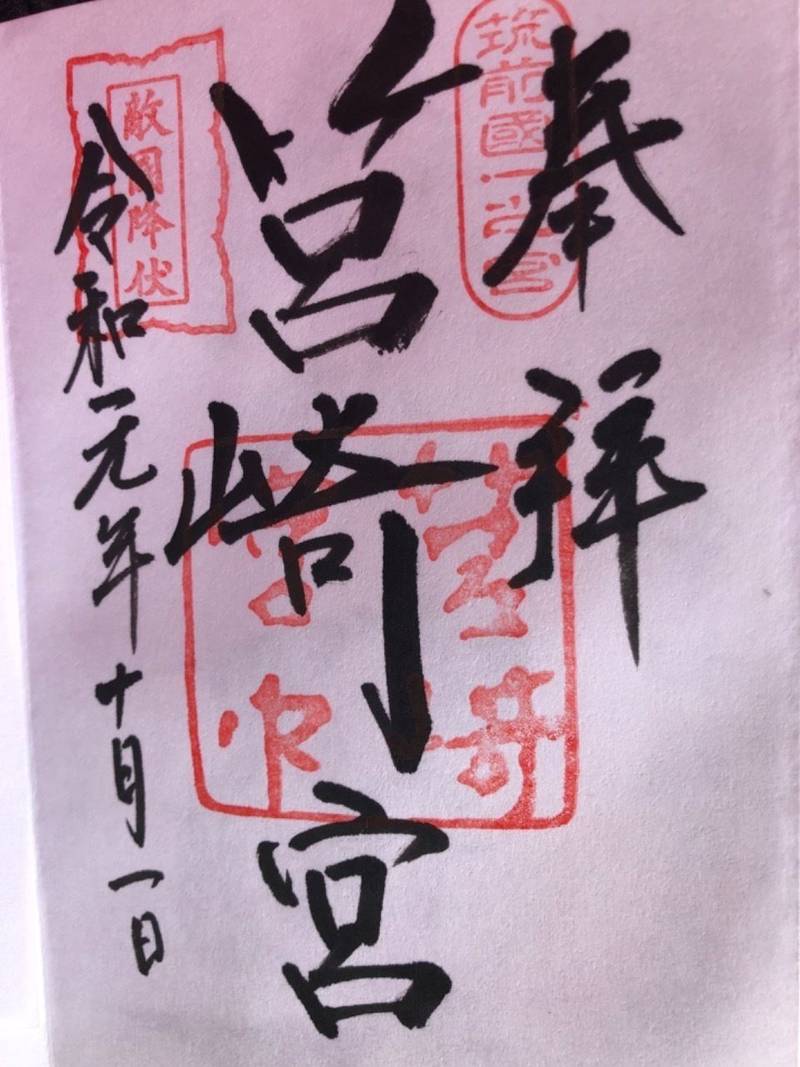 奉拝
筑前國一之宮
筥崎宮
筥崎
宮印
敵國降伏
令和元年十月一日